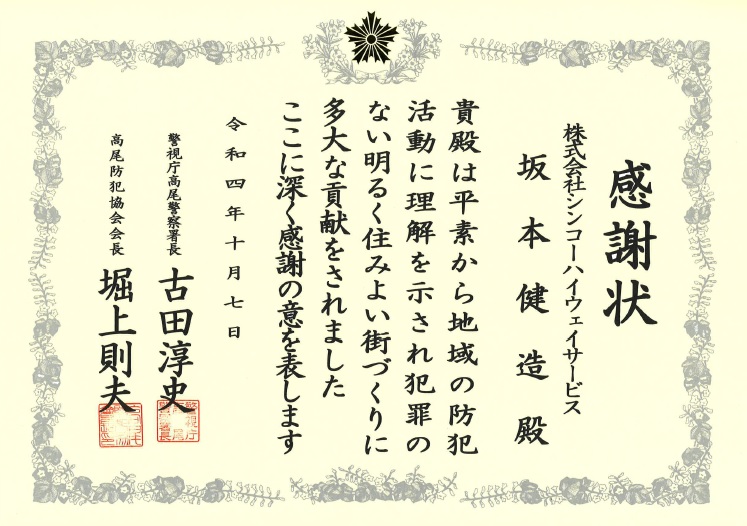 感謝状
株式会社シンコーハイウェイサービス
坂本健造殿
貴殿は平素から地域の防犯
活動に理解を示され犯罪の
ない明るく住みよい街づくりに
多大な貢献をされました
ここに深く感謝の意を表します
令和四年十月七日
警視庁高尾警察署長
古田淳史
高尾防犯協会会長
堀上則夫